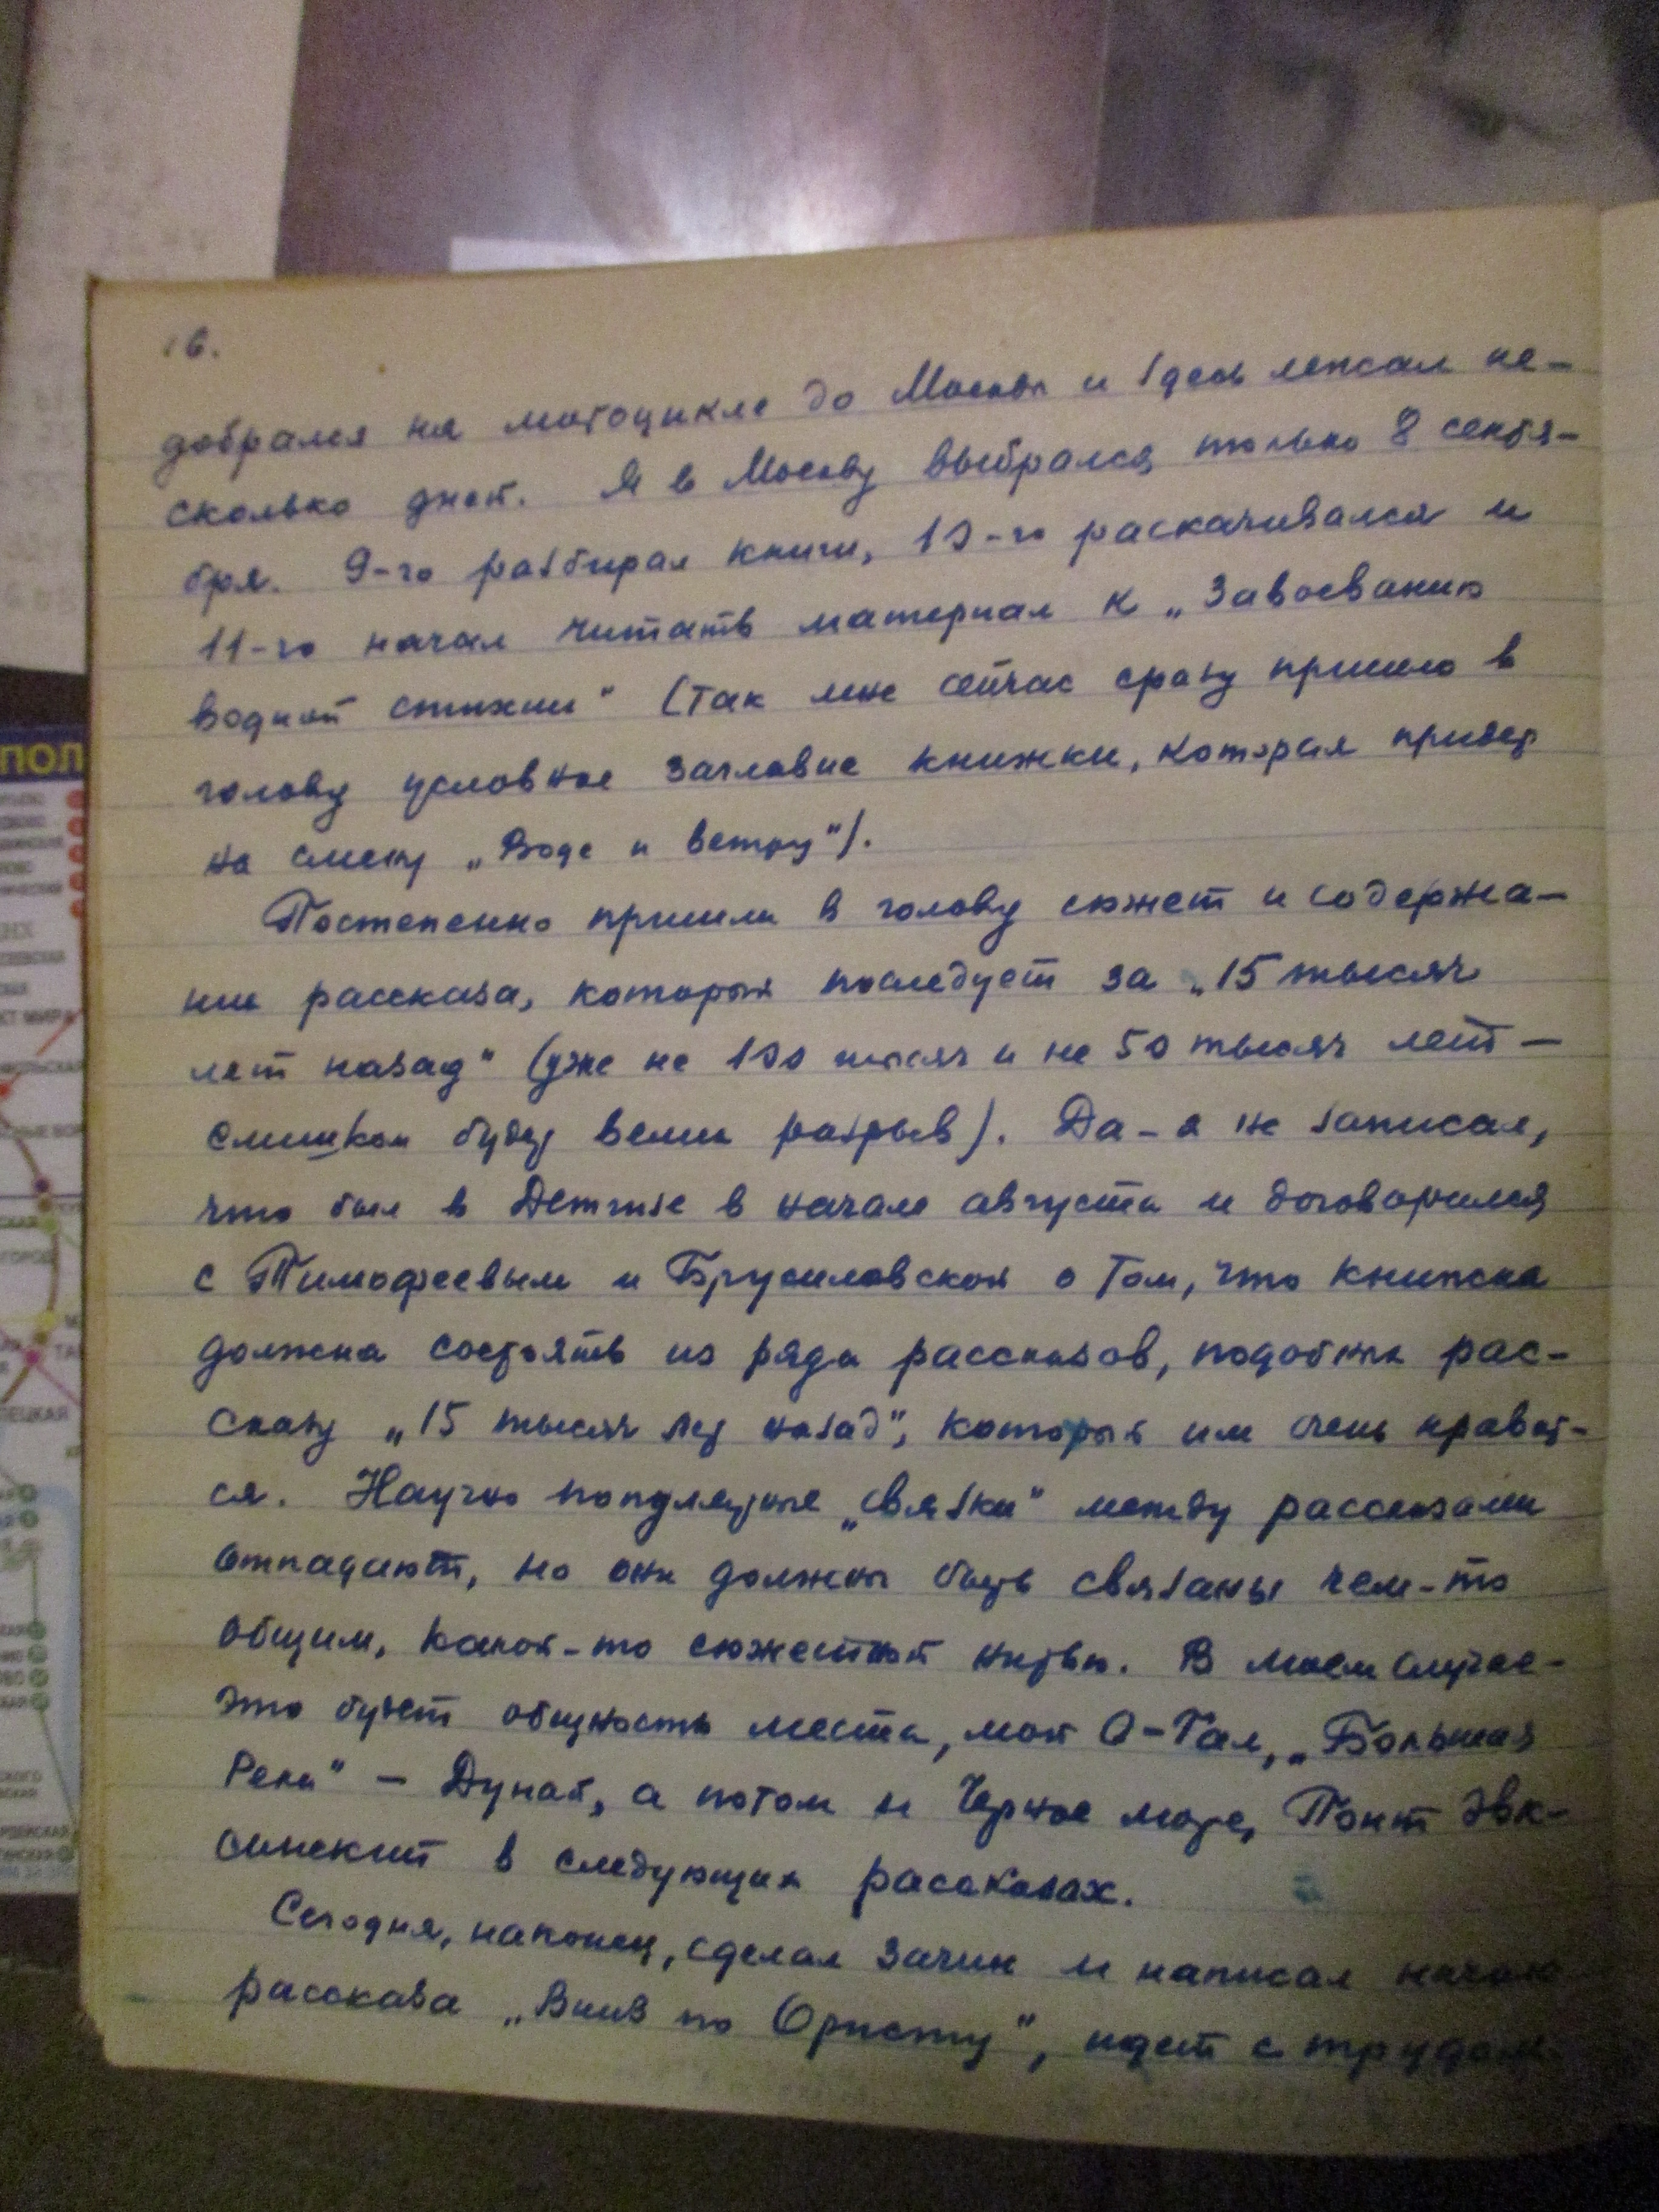 16.
добрался на мотоцикле до Москвы и здесь лежал не-
сколько дней. Я в Москву выбрался только 8 сентя-
бря. 9-го разбирал книги, 10-го раскачивался и
11-го начал читать материал к „Завоеванию
водной стихии" (так мне сейчас сразу пришло в
голову условное заглавие книжки, которая придет
на смену „Воде и ветру").
Постепенно пришли в голову сюжет и содержа-
ние рассказа, который последует за „15 тысяч
лет назад" (уже не 100 тысяч и не 50 тысяч лет —
слишком будет велик разрыв). Да – я не записал,
что был в Детгизе в начале августа и договорился
с Тимофеевым и Брусиловской о том, что книжка
должна состоять из ряда рассказов, подобных рас-
сказу „15 тысяч лет назад", который им очень нравит-
ся. Научно популярные „связки" между рассказами
отпадают, но они должны быть связаны чем-то
общим, какой-то сюжетной нитью. В моем случае –
это будет общность места, мой О-Тал, „Большая
Река" – Дунай, а потом и Черное море, Понт Эвк-
синский в следующих рассказах.
Сегодня, наконец, сделал зачин и написал начало
рассказа „Вниз по Ористу", идет с трудом
ПОЛ
КТ МИРА
ГОРОД